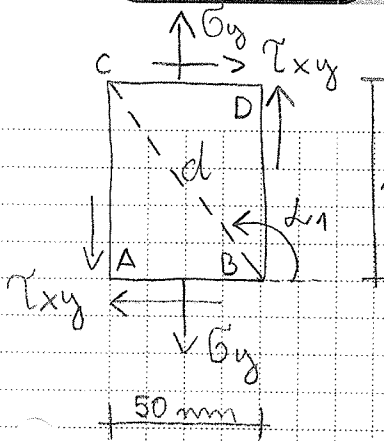 σy
C τxy
D
d
α1
A B
τxy
σy
50 mm